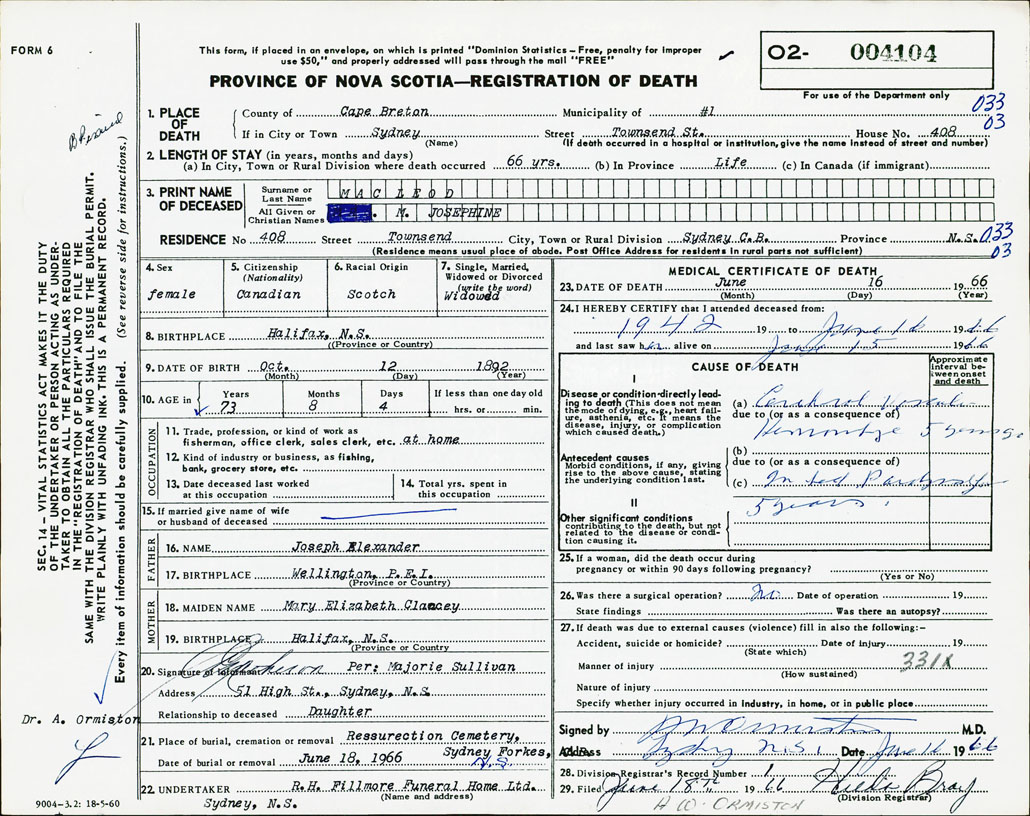 FORM 6
This form, if placed in an envelope, on which is printed "Dominion Statistics – Free, penalty for improper
use $50," and properly addressed will pass through the mail "FREE"
PROVINCE OF NOVA SCOTIA—REGISTRATION OF DEATH
O2- 004104
For use of the Department only
033
03
1. PLACE OF DEATH
County of Cape Breton Municipality of #1
If in City or Town Sydney Street Townsend St. House No. 408
(Name) (If death occurred in a hospital or institution, give the name instead of street and number)
2. LENGTH OF STAY (in years, months and days)
(a) In City, Town or Rural Division where death occurred 66 yrs. (b) In Province Life (c) In Canada (if immigrant)
3. PRINT NAME OF DECEASED
Surname or Last Name MAC LEOD
All Given or Christian Names M. JOSEPHINE
RESIDENCE No 408 Street Townsend City, Town or Rural Division Sydney C.B. Province N.S. 033
03
(Residence means usual place of abode. Post Office Address for residents in rural parts not sufficient)
4. Sex
female
5. Citizenship
(Nationality)
Canadian
6. Racial Origin
Scotch
7. Single, Married,
Widowed or Divorced
(write the word)
Widowed
8. BIRTHPLACE Halifax, N.S.
((Province or Country)
9. DATE OF BIRTH Oct. 12 1892
(Month) (Day) (Year)
10. AGE in Years Months Days If less than one day old
73 8 4 hrs. or min.
OCCUPATION
11. Trade, profession, or kind of work as
fisherman, office clerk, sales clerk, etc. at home
12. Kind of industry or business, as fishing,
bank, grocery store, etc.
13. Date deceased last worked
at this occupation
14. Total yrs. spent in
this occupation
15. If married give name of wife
or husband of deceased
FATHER
16. NAME Joseph Alexander
17. BIRTHPLACE Wellington, P.E.I.
(Province or Country)
MOTHER
18. MAIDEN NAME Mary Elizabeth Clancey
19. BIRTHPLACE Halifax, N.S.
(Province or Country)
20. Signature of Informant Per: Majorie Sullivan
Address 51 High St., Sydney, N.S.
Relationship to deceased Daughter
21. Place of burial, cremation or removal Ressurection Cemetery,
Sydney Forkes,
Date of burial or removal June 18, 1966 N.S.
22. UNDERTAKER R.H. Fillmore Funeral Home Ltd.
(Name and address)
Sydney, N.S.
MEDICAL CERTIFICATE OF DEATH
23. DATE OF DEATH June 16 1966
(Month) (Day) (Year)
24. I HEREBY CERTIFY that I attended deceased from:
1942 19 to June 16 1966
and last saw her alive on June 15 1966
CAUSE OF DEATH
Approximate interval between onset and death
I
Disease or condition directly leading to death (This does not mean the mode of dying, e.g., heart failure, asthenia, etc. It means the disease, injury, or complication which caused death.)
(a) Cerebral Vascular
due to (or as a consequence of)
Hemorrhage 5 years ago
Antecedent causes
Morbid conditions, if any, giving rise to the above cause, stating the underlying condition last.
(b)
due to (or as a consequence of)
(c) In bed Paralysed
5 years.
II
Other significant conditions
contributing to the death, but not related to the disease or condition causing it.
25. If a woman, did the death occur during
pregnancy or within 90 days following pregnancy?
(Yes or No)
26. Was there a surgical operation? No Date of operation 19
State findings Was there an autopsy?
27. If death was due to external causes (violence) fill in also the following:-
Accident, suicide or homicide? Date of injury 19
(State which)
Manner of injury 331X
(How sustained)
Nature of injury
Specify whether injury occurred in industry, in home, or in public place
Signed by AW Ormiston M.D.
Address Sydney N.S. Date June 16 1966
28. Division Registrar's Record Number 1
29. Filed June 18th 1966 Hilda Bray
(Division Registrar)
A W. ORMISTON
SEC. 14 – VITAL STATISTICS ACT MAKES IT THE DUTY
OF THE UNDERTAKER OR PERSON ACTING AS UNDER-
TAKER TO OBTAIN ALL THE PARTICULARS REQUIRED
IN THE "REGISTRATION OF DEATH" AND TO FILE THE
SAME WITH THE DIVISION REGISTRAR WHO SHALL ISSUE THE BURIAL PERMIT.
WRITE PLAINLY WITH UNFADING INK. THIS IS A PERMANENT RECORD.
Every item of information should be carefully supplied. (See reverse side for instructions.)
Dr. A. Ormiston
9004-3.2: 18-5-60